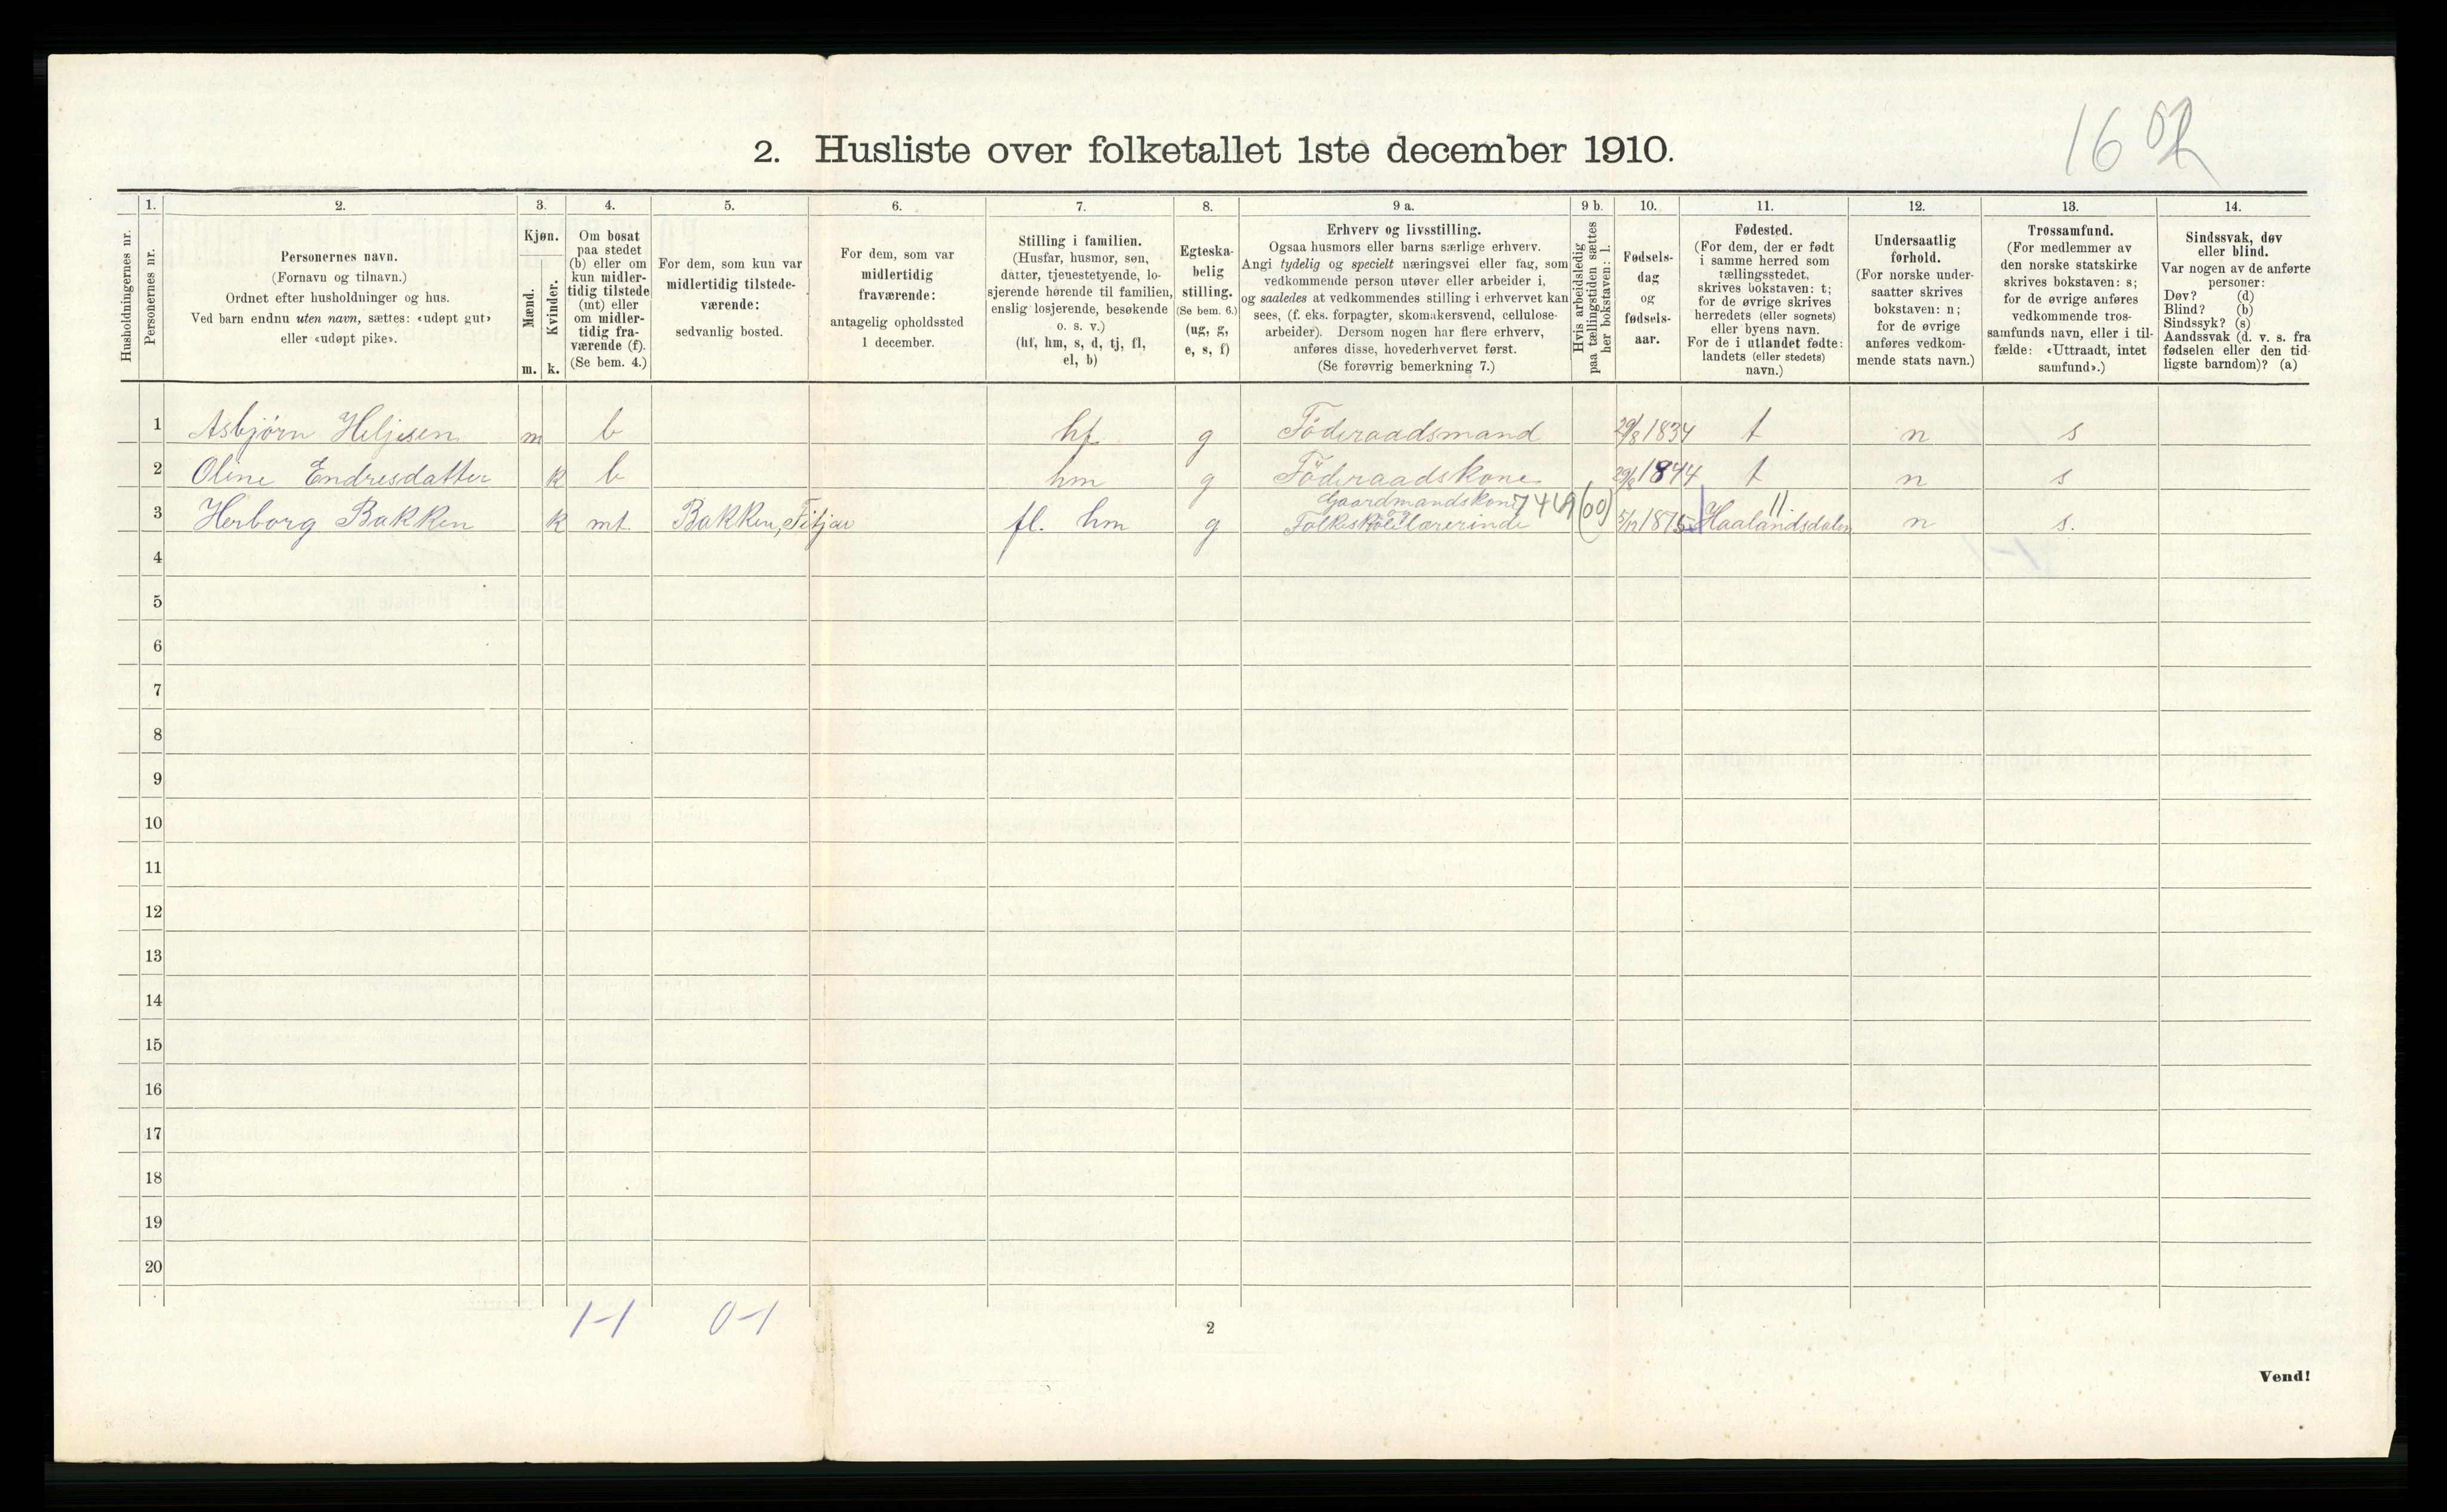 2. Husliste over folketallet 1ste december 1910.
Husholdningernes nr.
1.
Personernes nr.
2.
Personernes navn.
(Fornavn og tilnavn.)
Ordnet efter husholdninger og hus.
Ved barn endnu uten navn, sættes: «udøpt gut»
eller «udøpt pike».
3.
Kjøn.
Mænd.
Kvinder.
m. k.
4.
Om bosat
paa stedet
(b) eller om
kun midler-
tidig tilstede
(mt) eller
om midler-
tidig fra-
værende (f).
(Se bem. 4.)
5.
For dem, som kun var
midlertidig tilstede-
værende:
sedvanlig bosted.
6.
For dem, som var
midlertidig
fraværende:
antagelig opholdssted
1 december.
7.
Stilling i familien.
(Husfar, husmor, søn,
datter, tjenestetyende, lo-
sjerende hørende til familien,
enslig losjerende, besøkende
o. s. v.)
(hf, hm, s, d, tj, fl,
el, b)
8.
Egteska-
belig
stilling.
(Se bem. 6.)
(ug, g,
e, s, f)
9 a.
Erhverv og livsstilling.
Ogsaa husmors eller barns særlige erhverv.
Angi tydelig og specielt næringsvei eller fag, som
vedkommende person utøver eller arbeider i,
og saaledes at vedkommendes stilling i erhvervet kan
sees, (f. eks. forpagter, skomakersvend, cellulose-
arbeider). Dersom nogen har flere erhverv,
anføres disse, hovederhvervet først.
(Se forøvrig bemerkning 7.)
9 b.
Hvis arbeidsledig
paa tællingstiden sættes
her bokstaven: l.
10.
Fødsels-
dag
og
fødsels-
aar.
11.
Fødested.
(For dem, der er født
i samme herred som
tællingsstedet,
skrives bokstaven: t;
for de øvrige skrives
herredets (eller sognets)
eller byens navn.
For de i utlandet fødte:
landets (eller stedets)
navn.)
12.
Undersaatlig
forhold.
(For norske under-
saatter skrives
bokstaven: n;
for de øvrige
anføres vedkom-
mende stats navn.)
13.
Trossamfund.
(For medlemmer av
den norske statskirke
skrives bokstaven: s;
for de øvrige anføres
vedkommende tros-
samfunds navn, eller i til-
fælde: «Uttraadt, intet
samfund».)
14.
Sindssvak, døv
eller blind.
Var nogen av de anførte
personer:
Døv? (d)
Blind? (b)
Sindssyk? (s)
Aandssvak (d. v. s. fra
fødselen eller den tid-
ligste barndom)? (a)
1 Asbjørn Heljesen m b hf g Föderaadsmand 29/8 1834 t n s
2 Oline Endresdatter k b hm g Föderaadskone 1844 t n s
Gaardmandskone 7419 (00) 11.
3 Herborg Bakken k mt Bakken, Fitjar fl. hm g Folkskolelærerinde 5/12 1875 Haalandsdalen n s.
4
5
6
7
8
9
10
11
12
13
14
15
16
17
18
19
20
1-1 0-1
2
Vend!